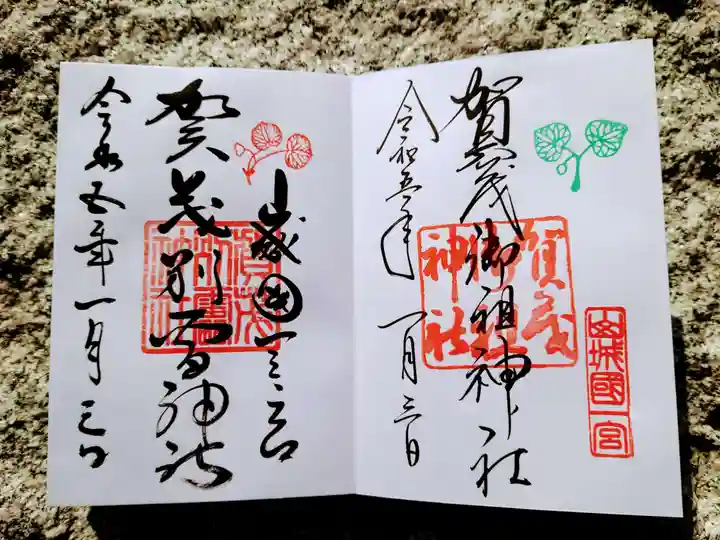 山城國一宮
賀茂御祖神社
賀茂御祖神社
令和五年一月三日
山城國一之宮
賀茂別雷神社
令和五年一月三日